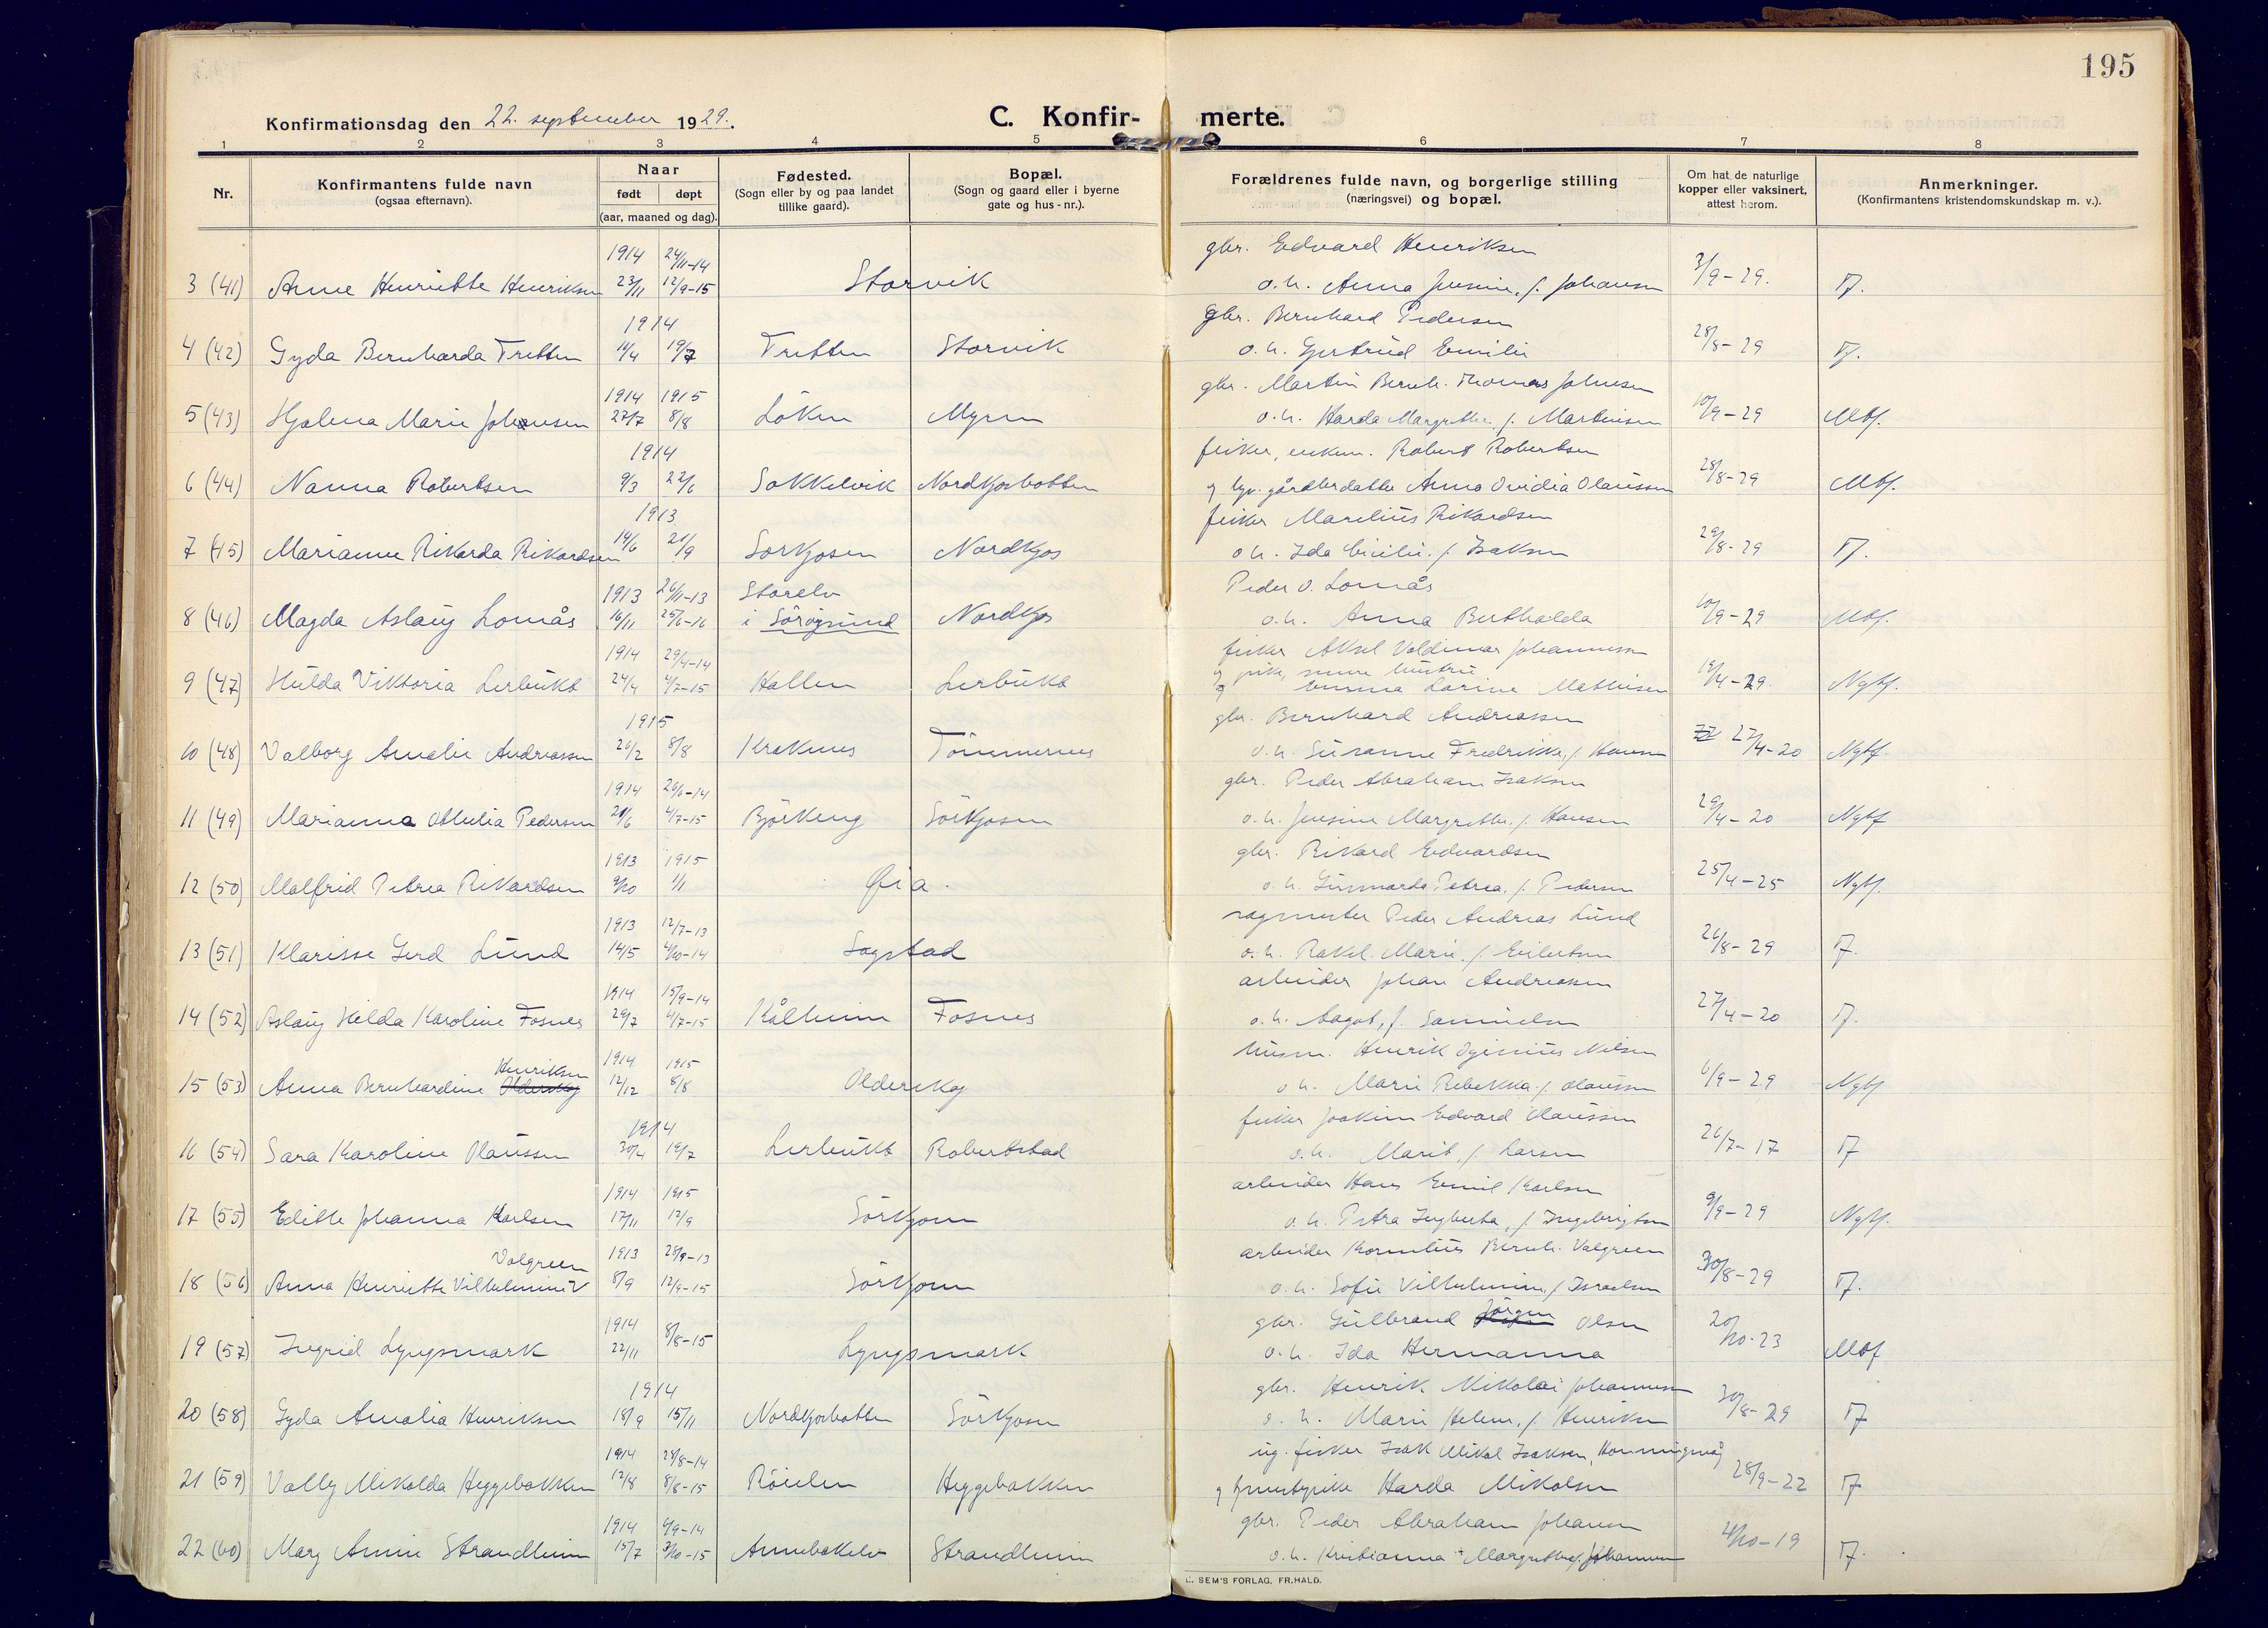 195
Konfirmationsdag den 22. september 1929.
C. Konfir- merte.
1 2 3 4 5 6 7 8
Nr.
Konfirmantens fulde navn
(ogsaa efternavn).
Naar
født døpt
(aar, maaned og dag).
Fødested.
(Sogn eller by og paa landet
tillike gaard).
Bopæl.
(Sogn og gaard eller i byerne
gate og hus-nr.).
Forældrenes fulde navn, og borgerlige stilling
(næringsvei) og bopæl.
Om hat de naturlige
kopper eller vaksinert,
attest herom.
Anmerkninger.
(Konfirmantens kristendomskundskap m. v.).
1914 24/11-14 gbr. Edvard Henriksen
3 (41) Anne Henriette Henriksen 23/11 12/9-15 Storvik o.h. Anna Jensine, f. Johansen 3/9-29. T.
1914 gbr. Bernhard Pedersen
4 (42) Gyda Bernharda Tretten 14/4 19/7 Tretten Storvik o.h. Gjertrud Emilie 28/8-29 T.
1914 1915 gbr. Martin Bernh. Thomas Johnsen
5 (43) Hjalma Marie Johansen 27/7 8/8 Löken Myren o.h. Harda Margrethe, f. Martinsen 10/9-29 Mtf.
1914 fisker, enkem. Robert Robertsen
6 (44) Nanna Robertsen 9/3 22/6 Sokkelvik Nordkjosbotten og gårdbrdatter Anna Ovidia Olaussen 28/8-29 Mtf.
1913 fisker Marelius Rikardsen
7 (45) Marianne Rikarda Rikardsen 14/6 21/9 Sorkjosen Nordkjos o.h. Ida Cecilie, f. Isaksen 29/8-29 T.
1913 26/11-13 Storelv Peder O. Lomås
8 (46) Magda Aslaug Lomås 16/11 25/6-16 i Sörøysund Nordkjos o.h. Anna Berthalda 10/9-29 Mtf.
1914 29/4-14 fisker Aksel Valdemar Johannessen
og pike, senere hustru
9 (47) Hulda Viktoria Lerbukt 24/4 4/7-15 Hallen Lerbukt og Emma Larine Mathisen 19/4-29. Ngtf.
1915 gbr. Bernhard Andreassen
10 (48) Valborg Amalie Andreassen 20/2 8/8 Kraknes Tömmernes o.h. Susanne Fredrikke, f. Hansen 27/4-20 Ngtf.
1914 26/6-14 gbr. Peder Abraham Isaksen
11 (49) Marianna Othelia Pedersen 21/6 4/7-15 Björkeng Sörkjosen o.h. Jensine Margrethe, f. Hansen 29/4-20 Ngtf
1913 1915 gbr. Rikard Edvardsen
12 (50) Malfrid Petrea Rikardsen 9/10 1/1 Øia. o.h. Gunnarda Petrea, f. Pedersen 25/4-25 Ngtf.
1913 12/7-13 sagmester Peder Andreas Lund
13 (51) Klarisse Gerd Lund 14/5 4/10-14 Sagstad o.h. Rakel Marie, f. Eilertsen 26/8-29 T.
1914 15/9-14 arbeider Johan Andreassen
14 (52) Aslaug Hilda Karoline Fosnes 29/7 4/7-15 Kålheim Fosnes o.h. Aagot, f. Samuelsen 27/4-20 T.
Henriksen 1914 1915 husm. Henrik Nilsen
15 (53) Anna Bernhardine Olderskog 12/12 8/8 Olderskog o.h. Marie Rebekka, f. Olaussen 6/9-29 Ngtf
1914 fisker Joakim Edvard Olaussen
16 (54) Sara Karoline Olaussen 30/4 19/7 Lerbukt Robertstad o.h. Marit, f. Larsen 26/7-17 T
1914 1915 arbeider Hans Emil Karlsen
17 (55) Edith Johanna Karlsen 17/11 12/9 Sörkjosen o.h. Petra Ingberta, f. Ingebrigtsen 9/9-29 Ngtf.
Valgreen 1913 28/9-13 arbeider Kornelius Bernh. Valgreen
18 (56) Anna Henriette Vilhelmine V 8/9 12/9-15 Sörkjosen o.h. Sofie Vilhelmine, f. Israelsen 30/8-29 T.
1914 8/8-15 gbr. Gulbrand Jörgen Olsen
19 (57) Ingrid Lyngsmark 22/11 Lyngsmark o.h. Ida Hermanna 20/10-23 Mtf
1914 gbr. Henrik Nikolai Johannessen
20 (58) Gyda Amalia Henriksen 18/9 15/11 Nordkjosbotten Sörkjosen o.h. Marie Helene, f. Henriksen 30/8-29 T
1914 28/8-14 ug. fisker Isak Mikal Isaksen, Honningsvåg
21 (59) Vally Mikalda Heggebakken 12/8 8/8-15 Röielen Heggebakken og Harda Mikalsen 28/9-22 T
1914 6/9-14 gbr. Peder Abraham Johansen
22 (60) Mary Annie Strandheim 15/7 3/10-15 Annebakelv Strandheim o.h. Kristianna Margrethe, f. Johannessen 4/10-19 T.
E. SEM'S FORLAG, FR.HALD.